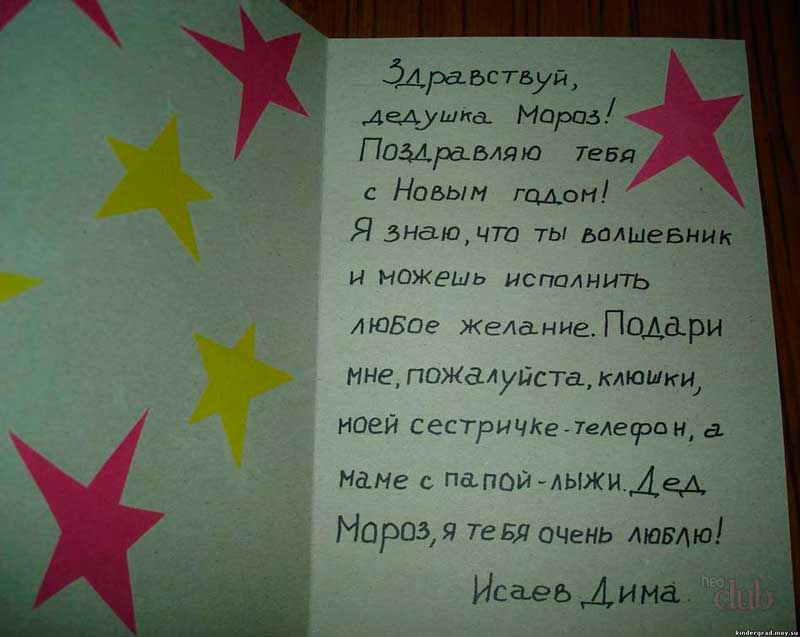 Здравствуй,
дедушка Мороз!
Поздравляю тебя
с Новым годом!
Я знаю, что ты волшебник
и можешь исполнить
любое желание. Подари
мне, пожалуйста, клюшки,
моей сестричке-телефон, а
маме с папой-лыжи. Дед
Мороз, я тебя очень люблю!
Исаев Дима.
neo
club
kindergrad.moy.su